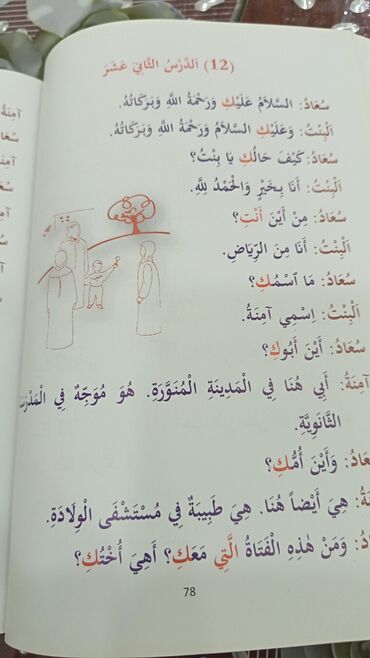 (12) اَلدَّرْسُ الثَّانِيَ عَشَرَ
سُعَادُ: السَّلَامُ عَلَيْكِ وَرَحْمَةُ اللهِ وَبَرَكَاتُهُ.
اَلْبِنْتُ: وَعَلَيْكِ السَّلَامُ وَرَحْمَةُ اللهِ وَبَرَكَاتُهُ.
سُعَادُ: كَيْفَ حَالُكِ يَا بِنْتُ؟
اَلْبِنْتُ: أَنَا بِخَيْرٍ وَالْحَمْدُ لِلّٰهِ.
سُعَادُ: مِنْ أَيْنَ أَنْتِ؟
اَلْبِنْتُ: أَنَا مِنَ الرِّيَاضِ.
سُعَادُ: مَا ٱسْمُكِ؟
اَلْبِنْتُ: اِسْمِي آمِنَةُ.
سُعَادُ: أَيْنَ أَبُوكِ؟
آمِنَةُ: أَبِي هُنَا فِي الْمَدِينَةِ الْمُنَوَّرَةِ. هُوَ مُوَجِّهٌ فِي
الثَّانَوِيَّةِ.
وَأَيْنَ أُمُّكِ؟
هِيَ أَيْضاً هُنَا. هِيَ طَبِيبَةٌ فِي مُسْتَشْفَى الْوِلَادَةِ.
وَمَنْ هٰذِهِ الْفَتَاةُ الَّتِي مَعَكِ؟ أَهِيَ أُخْتُكِ؟
78